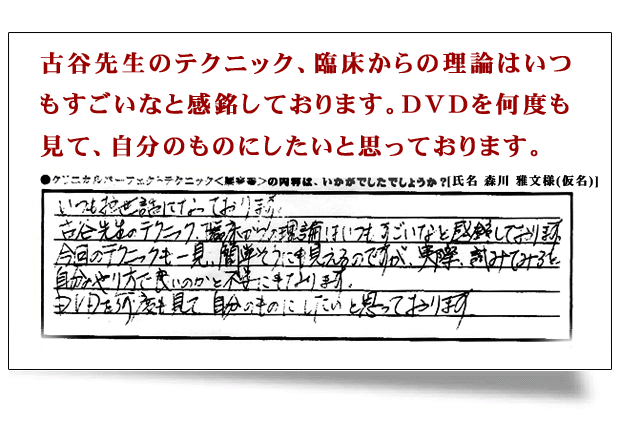 古谷先生のテクニック、臨床からの理論はいつ
もすごいなと感銘しております。DVDを何度も
見て、自分のものにしたいと思っております。
●クリニカルパーフェクトテクニック<腰痛>の内容は、いかがでしたでしょうか?[氏名 森川 雅文様(仮名)]
いつもお世話になっております。
古谷先生のテクニック、臨床からの理論はいつもすごいなと感銘しております。
今回のテクニックも一見、簡単そうにも見えるのですが、実際、試みてみると
自分のやり方で良いのかと不安にもなります。
DVDを何度も見て 自分のものにしたいと思っております